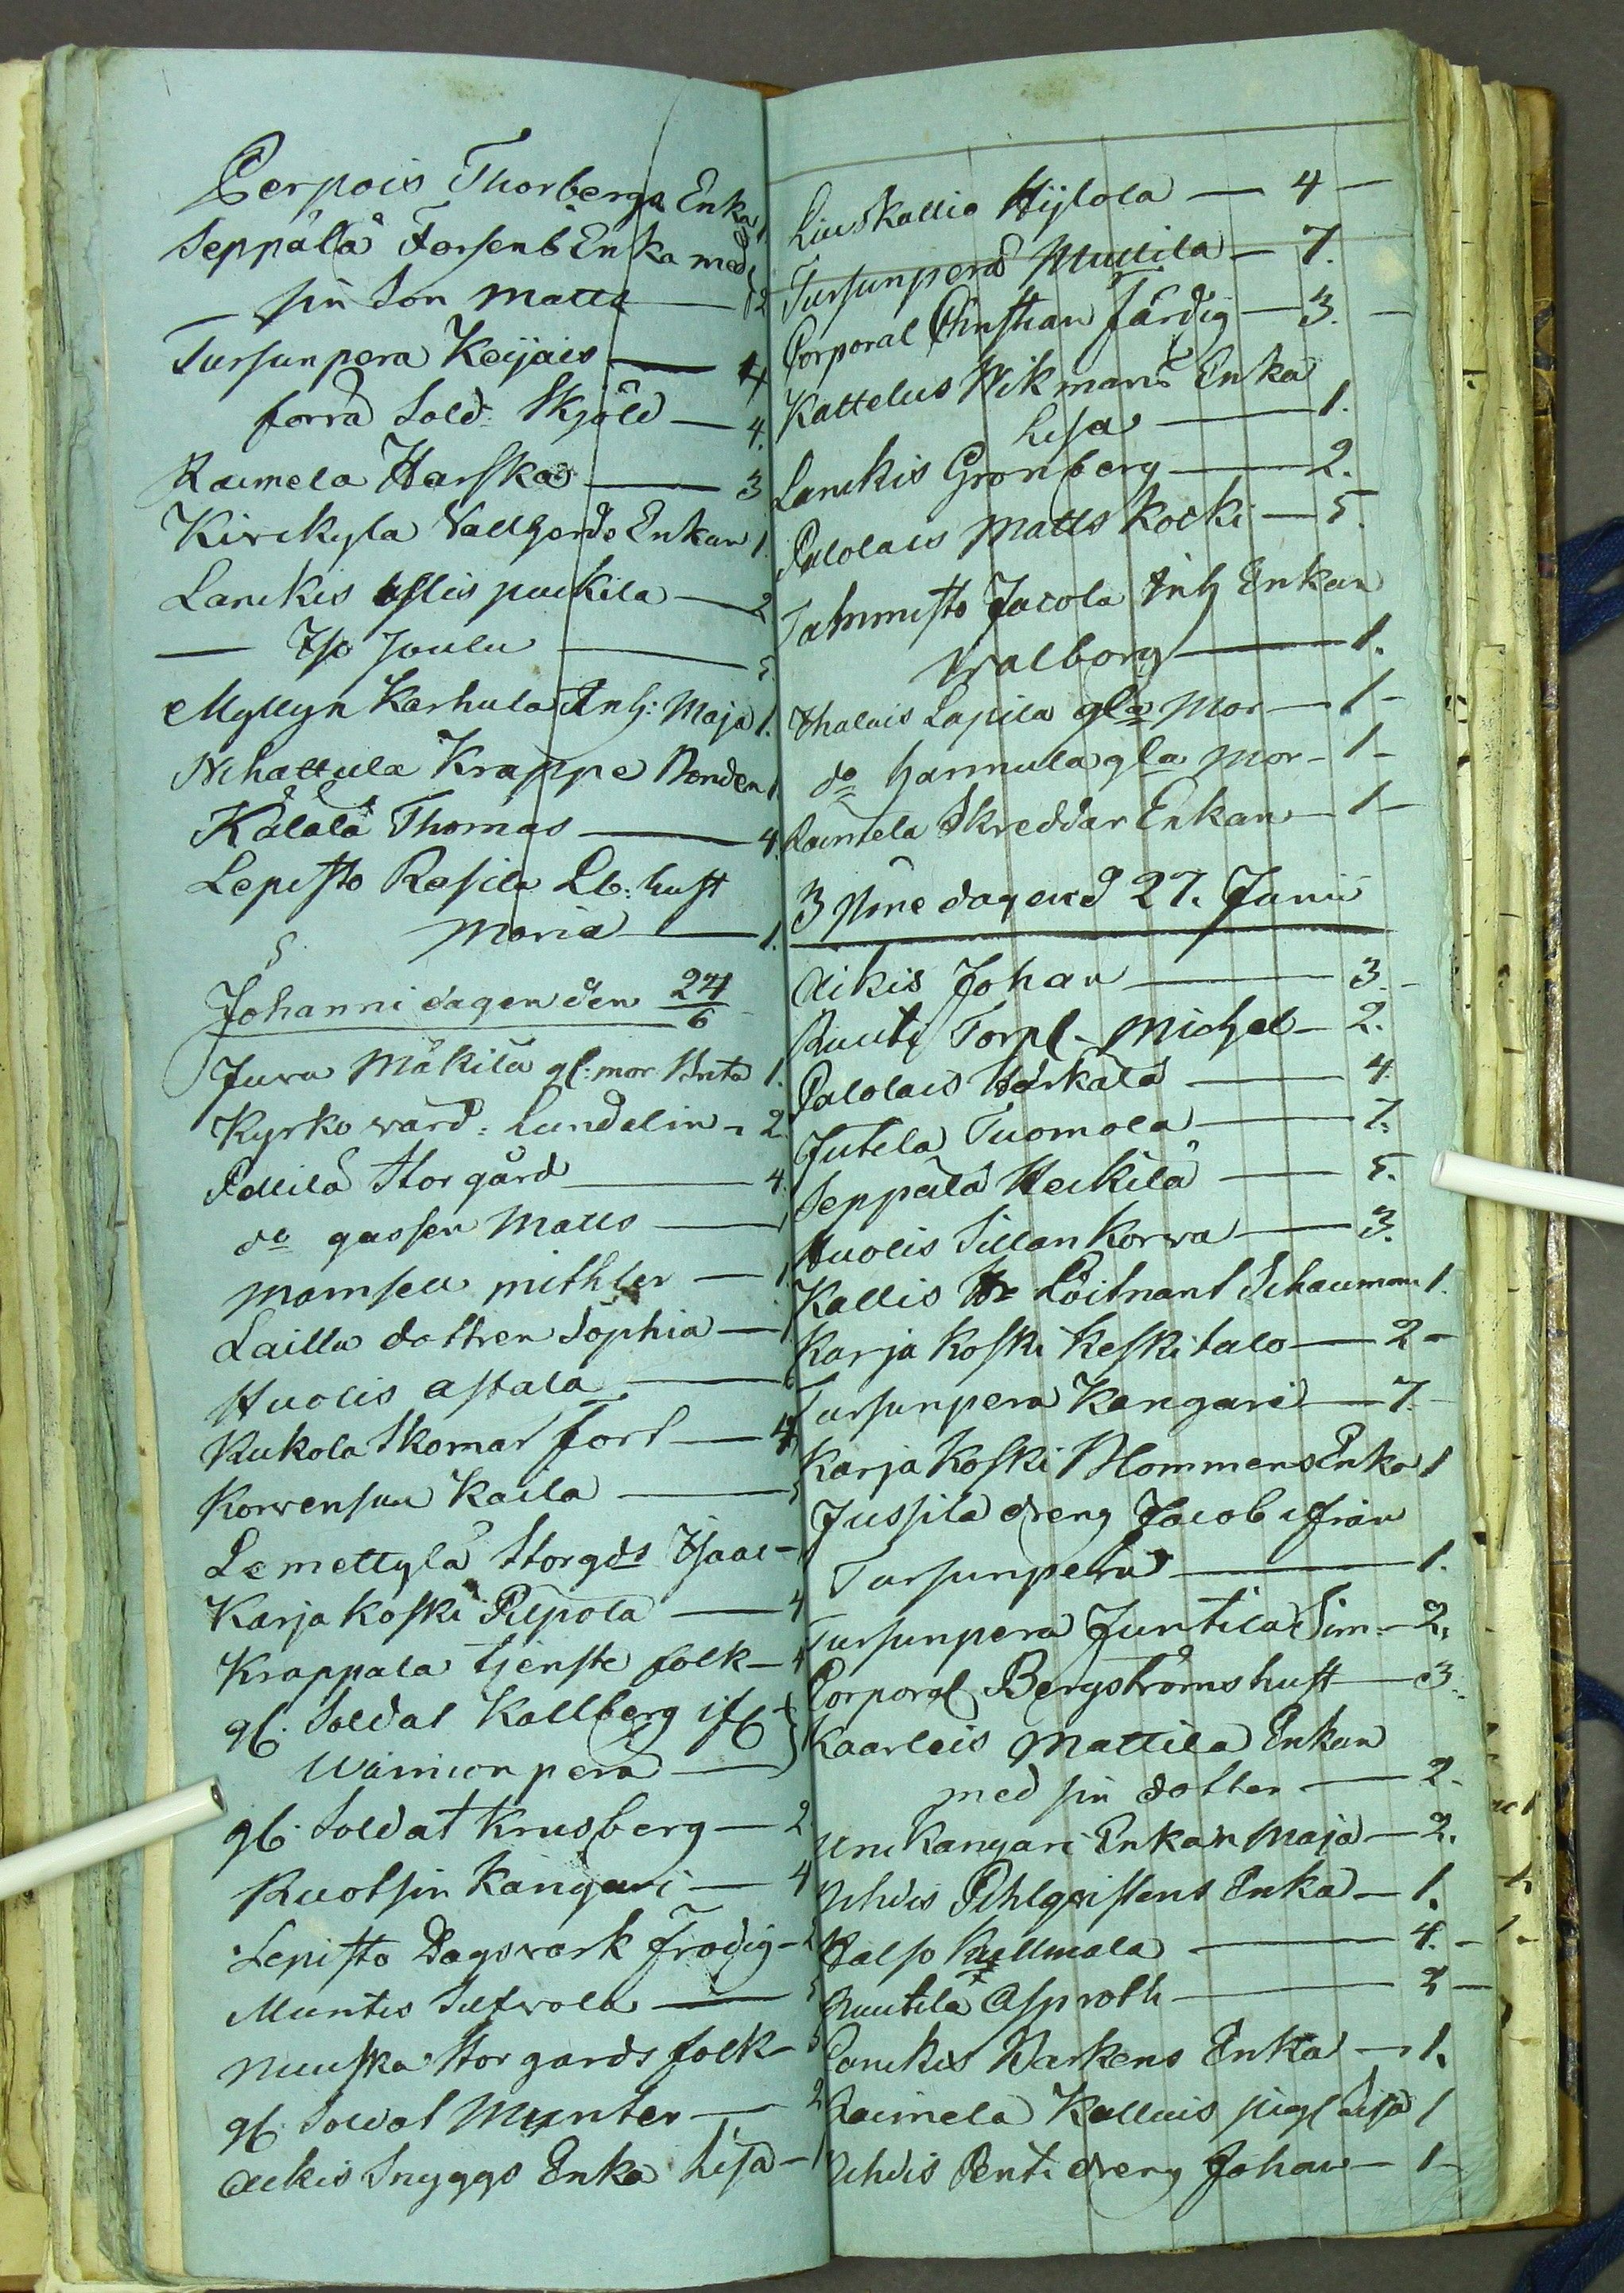 Perpois Thorbergs Enka 1
Seppälä Forsenb Enka med
— sin Son Matts — 2
Tursunpera Keijais — 4
forra Sold: Skjöld — 4.
Raimela Harska — 3
Kirckyla Vallgords Enkan 1.
Lanckis Uflis puckila — 2
— Iso Joulu — 5
Myllyn Karhula Inh: Maja 1.
Nihattula Krappe Bonden 1.
Kälälä Thomas — 4.
Lepisto Rasila Lb: hust
Maria — 1.
Johanni dagen den 24/6
Juva Mäkilä gl: mor Brita 1.
Kyrko vard: Lundelin — 2.
Pellilä Storgård — 4.
do gassen Matts — 1
Mamsell Mithler — 1
Lailla dottren Sophia — 1.
Huolis Astala — 6
Kukola Skomar Fort — 4
Korvensuu Kaila — 5
Lemettylä Storgds Isaac —
Karja koski Pilpola — 4
Krappala tjenste folk — 4
gl. Soldat Kallberg ifr
Wäinionperä —
gl. Soldat Krusberg — 2
Ruotsin Kangari — 4
Lepisto Dagsvark Frodig — 2
Muntis Sifvola — 5
Nuuska Storgards folk — 5
gl. Soldat Munter — 2
Aikis Snyggs Enka Lisa — 1
Liuskallio Hijlola — 4 —
Tursunperä Mullila — 7.
Corporal Christian Färdig — 3. —
Kattelus Wikmans Enka
Lisa — 1.
Lanckis Gronberg — 2.
Palolais Matts Kocki — 5.
Tammisto Jacola Inh Enkan
Walborg — 1.
Ihalais Lapila gla Mor — 1 —
do hannula gla Mor — 1 —
Raimela Skreddar Enkan — 1 —
3 Böne dagen d 27. Junii
Aikis Johan — 3. —
Ruuti Torpl. Michel — 2.
Palolais Härkälä — 4.
Jutila Tuomola — 7.
Seppälä Heikilä — 5.
Huolis Sillan Korva — 3.
Kallis Hr Löitnant Schauman 1.
Karja Koski Keskitalo — 2 —
Tursunpera Kangari — 7. —
Karja Koski Blommens Enka 1
Jussila dreng Jacob ifrån
Tursunpera — 1.
Tursunpera Juntila Sim — 2.
Corporal Bergströms hust — 3.
Kaarleis Mattila Enkan
med sin dotter — 2.
Kangari Enkan Maja — 2.
Uhvis Pihlqvistens Enka — 1.
Halso Kyllmälä — 4. —
Ruutila Asproth — 2 —
Lanckis Warkens Enka — 1.
Raimela Kalluis pig Lisa 1
Uhvis Penti dreng Johan — 1